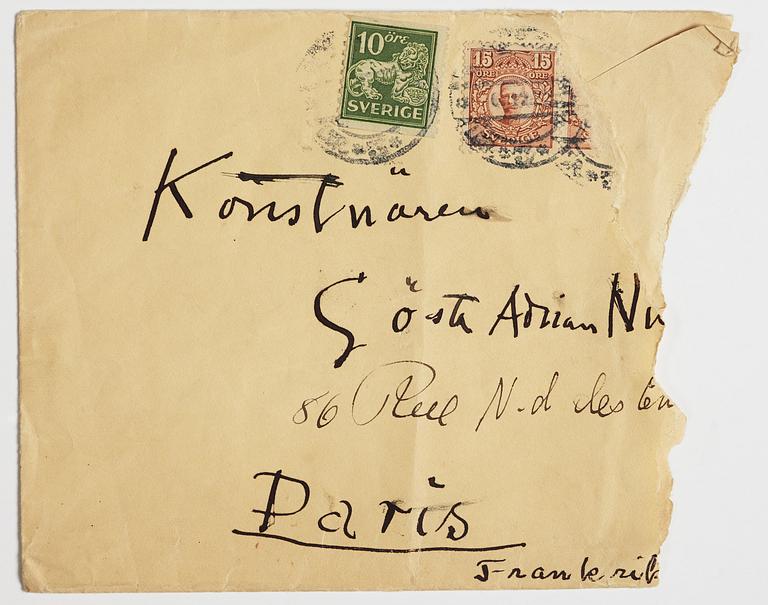 10 öre
SVERIGE
15 15
ÖRE ÖRE
SVERIGE
Konstnären
Gösta Adrian Nu
86 Rue N.d des
Paris
Frankrik